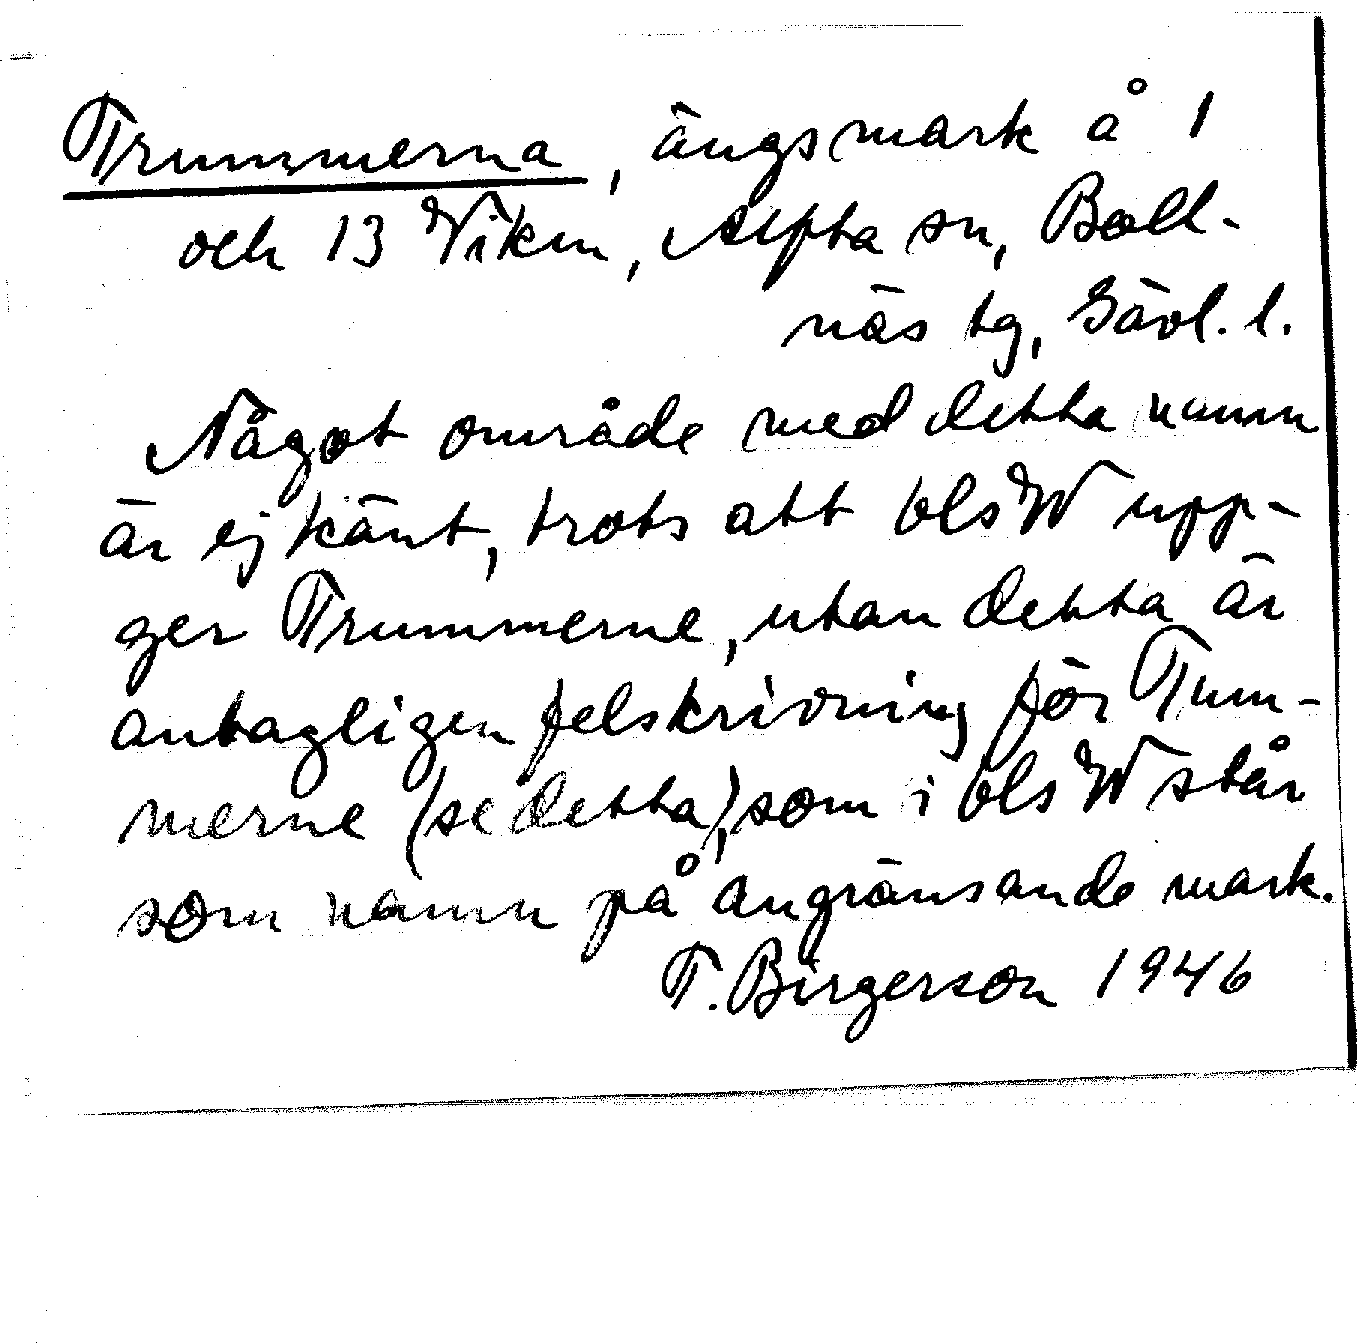 Trummerna, ängsmark å 1
och 13 Viken, Alfta sn, Boll-
näs tg, Gävl. l.
Något område med detta namn
är ej känt, trots att bls W upp-
ger Trummerne, utan detta är
antagligen felskrivning för Tum-
merne (se detta), som i bls W står
som namn på angränsande mark.
T. Birgerson 1946